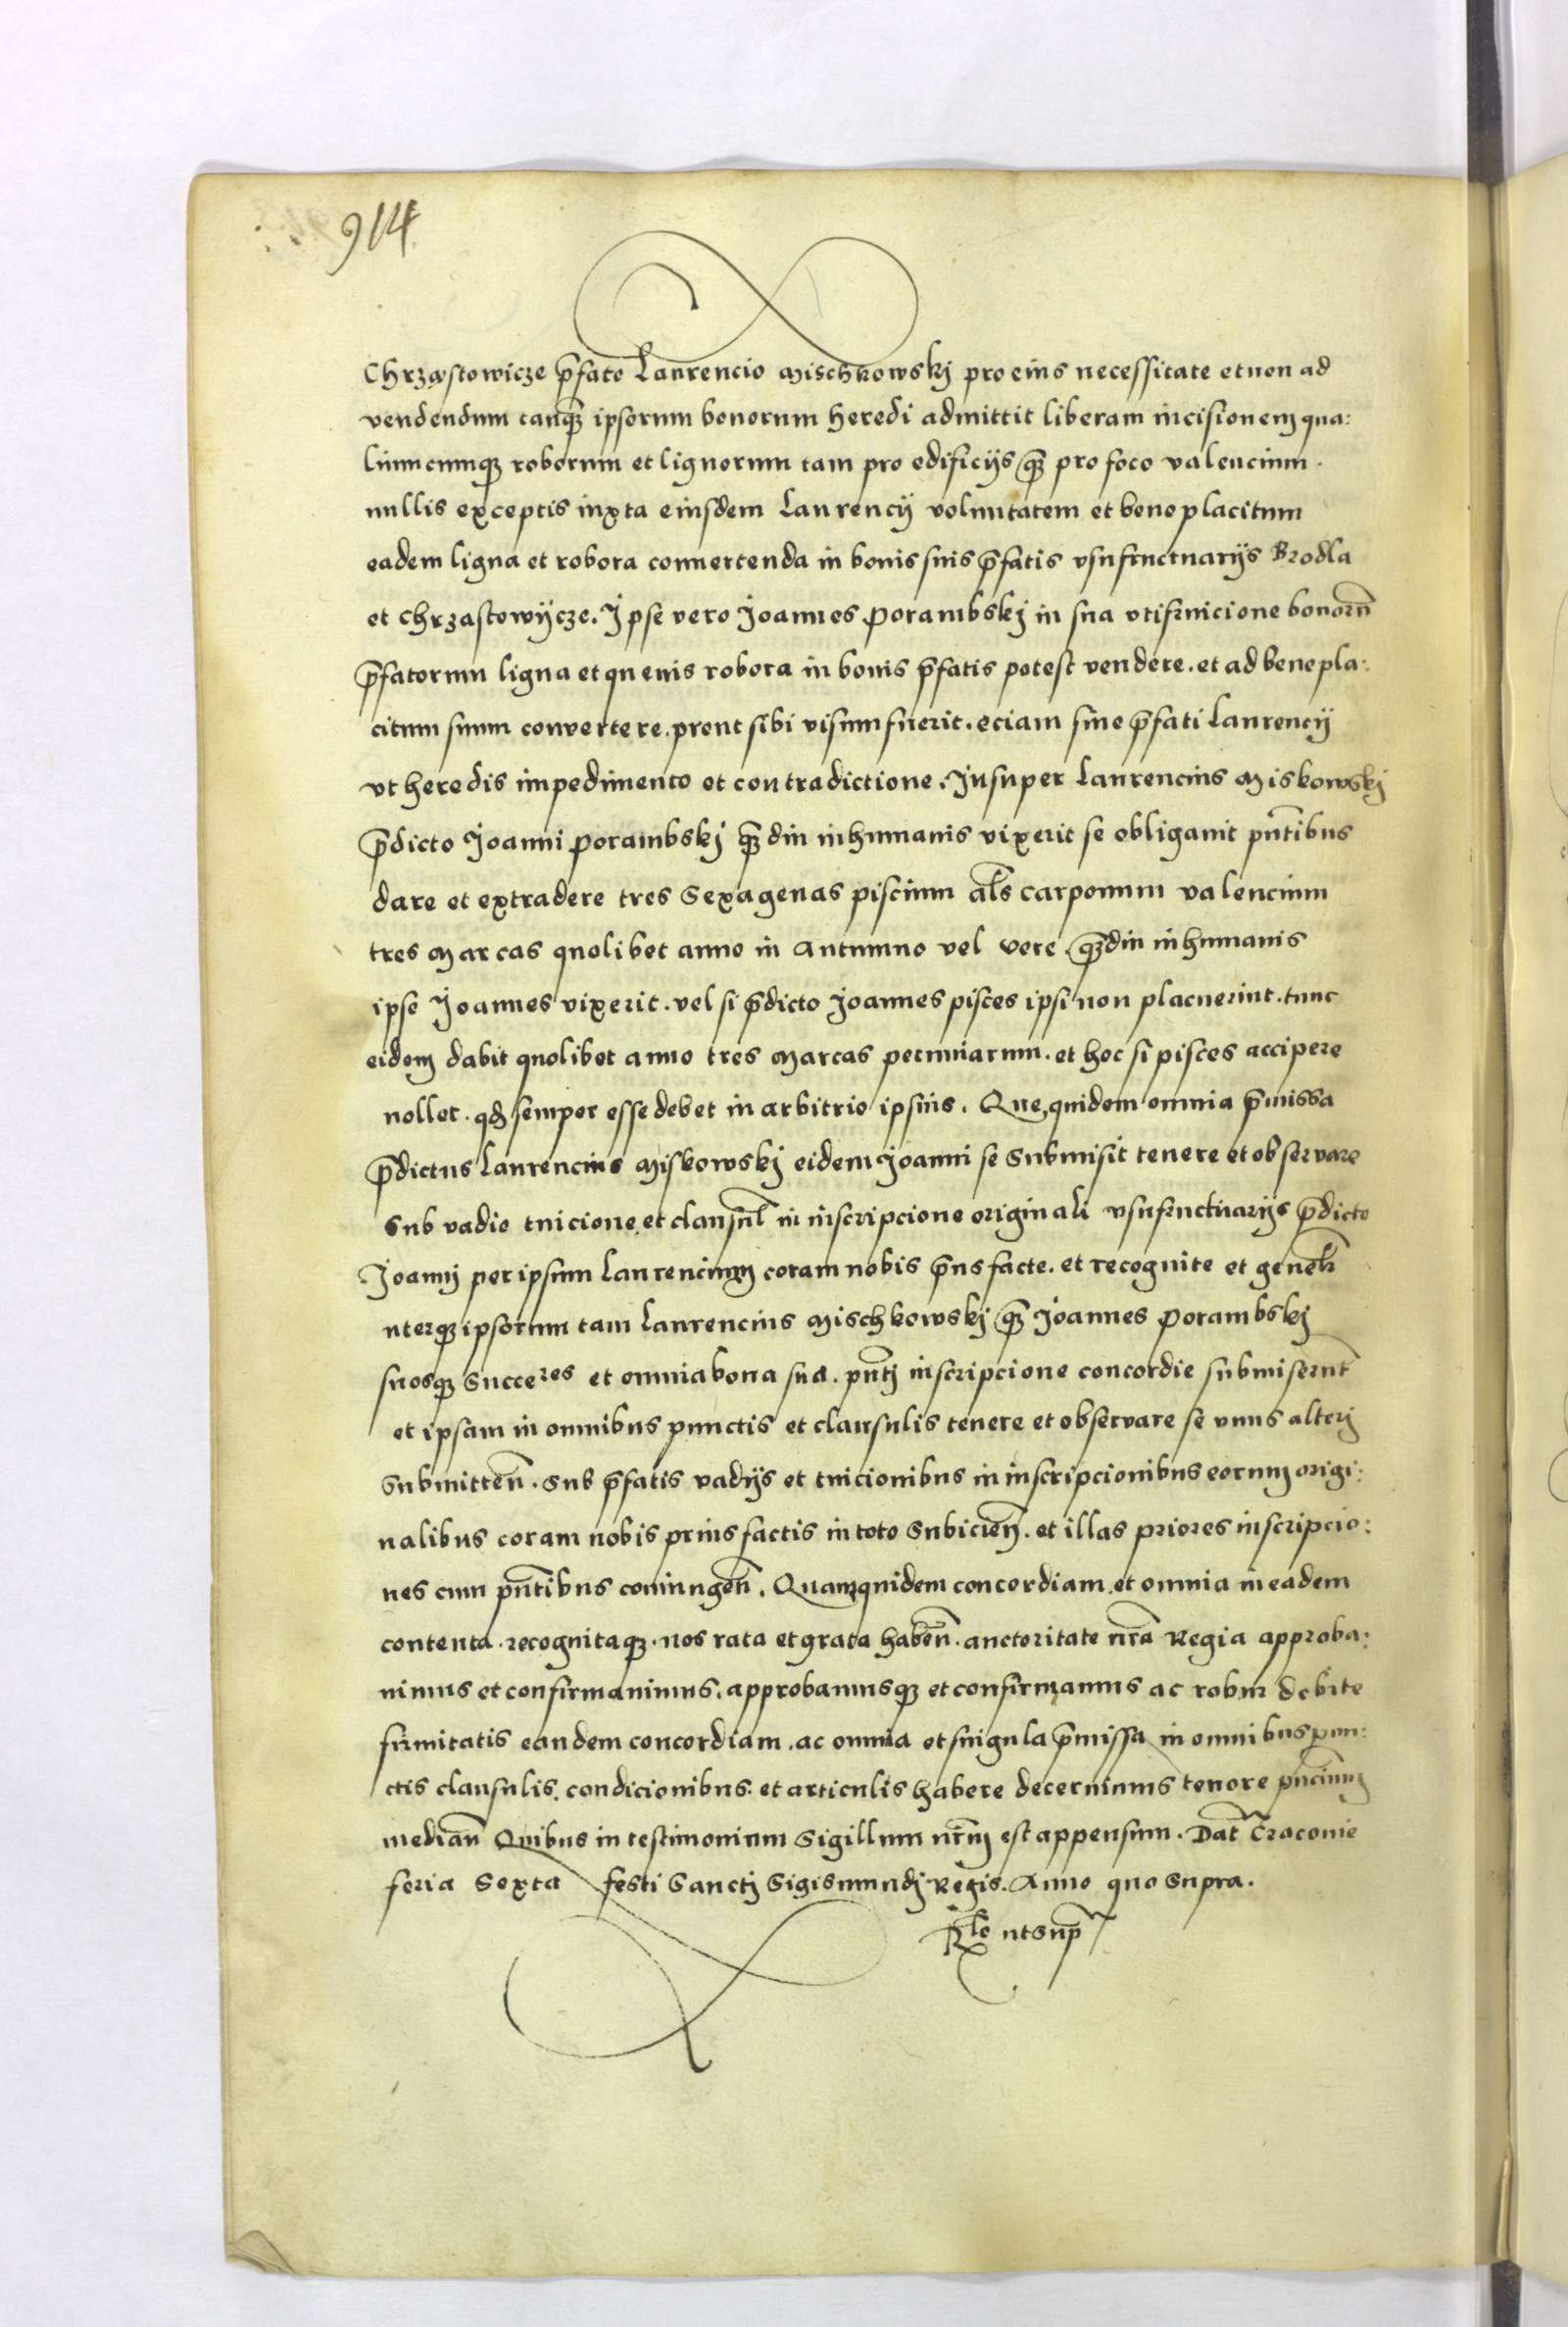 914
Chrząstowicze p̄fato Laurencio Mischkowskj pro eius necessitate et non ad
vendendum tanq̄ ipsorum bonorum heredi admittit liberam incisionem qua:
liumcumqȝ roborum et lignorum tam pro edificijs q̄ pro foco valencium.
nullis exceptis iuxta eiusdem Laurencij voluntatem et beneplacitum
eadem ligna et robora conuertenda in bonis suis p̄fatis vsufructuarijs Brodla
et Chrzastowijcze. Ipse vero Joannes Porambskj in sua vtifruicione bonorū
p̄fatorum ligna et queuis robora in bonis p̄fatis potest vendere. et ad benepla:
citum suum convertere. prout sibi visum fuerit. eciam sine p̄fati Laurencij
vt heredis impedimento et contradictione. Insuper Laurencius Miskowskj
p̄dicto Joanni Porambskj q̄diu in humanis vixerit se obligauit pn̄tibus
dare et extradere tres Sexagenas piscium al̄s carponum valencium
tres Marcas quolibet anno in Autumno vel vere. q̄diu in humanis
ipse Joannes vixerit. vel si p̄dicto Joannes pisces ipsi non placuerint. tunc
eidem dabit quolibet anno tres Marcas pecuniarum. et hoc si pisces accipere
nollet. qd̄ semper esse debet in arbitrio ipsius. Que quidem omnia p̄missa
p̄dictus Laurencius Miskowskj eidem Joanni se Submisit tenere et observare
Sub vadio tuicione et clausul̄ in inscripcione originali vsufructuarijs p̄dicto
Joannj per ipsum Laurencium coram nobis p̄ns facte. et recognite et gen̄eli
uterqȝ ipsorum tam Laurencius Mischkowskj q̄ Joannes Porambskj
suosqȝ Succeres et omnia bona sua. pn̄tj inscripcione concordie submiserūt
et ipsam in omnibus punctis et clausulis tenere et observare se vnus alterj
Submitten̄. Sub p̄fatis vadijs et tuicionibus in inscripcionibus eorum origi:
nalibus coram nobis prius factis in toto Subicien̄. et illas priores inscripcio:
nes cum pn̄tibus coniungen̄. Quamquidem concordiam. et omnia in eadem
contenta. recognitaqȝ. nos rata et grata haben̄. auctoritate nr̄a Regia approba:
uimus et confirmauimus. approbamusqȝ et confirmamus ac robur debite
firmitatis eandem concordiam. ac omnia et singula p̄missa in omnibus pun:
ctis clausulis. condicionibus. et articulis habere decernimus tenore pn̄cium
median̄ Quibus in testimonium Sigillum nr̄m est appensum. Dat̄ Cracouie
feria Sexta festi Sanctj Sigismundj Regis. Anno quo Supra.
Rl̄o ut sup̄